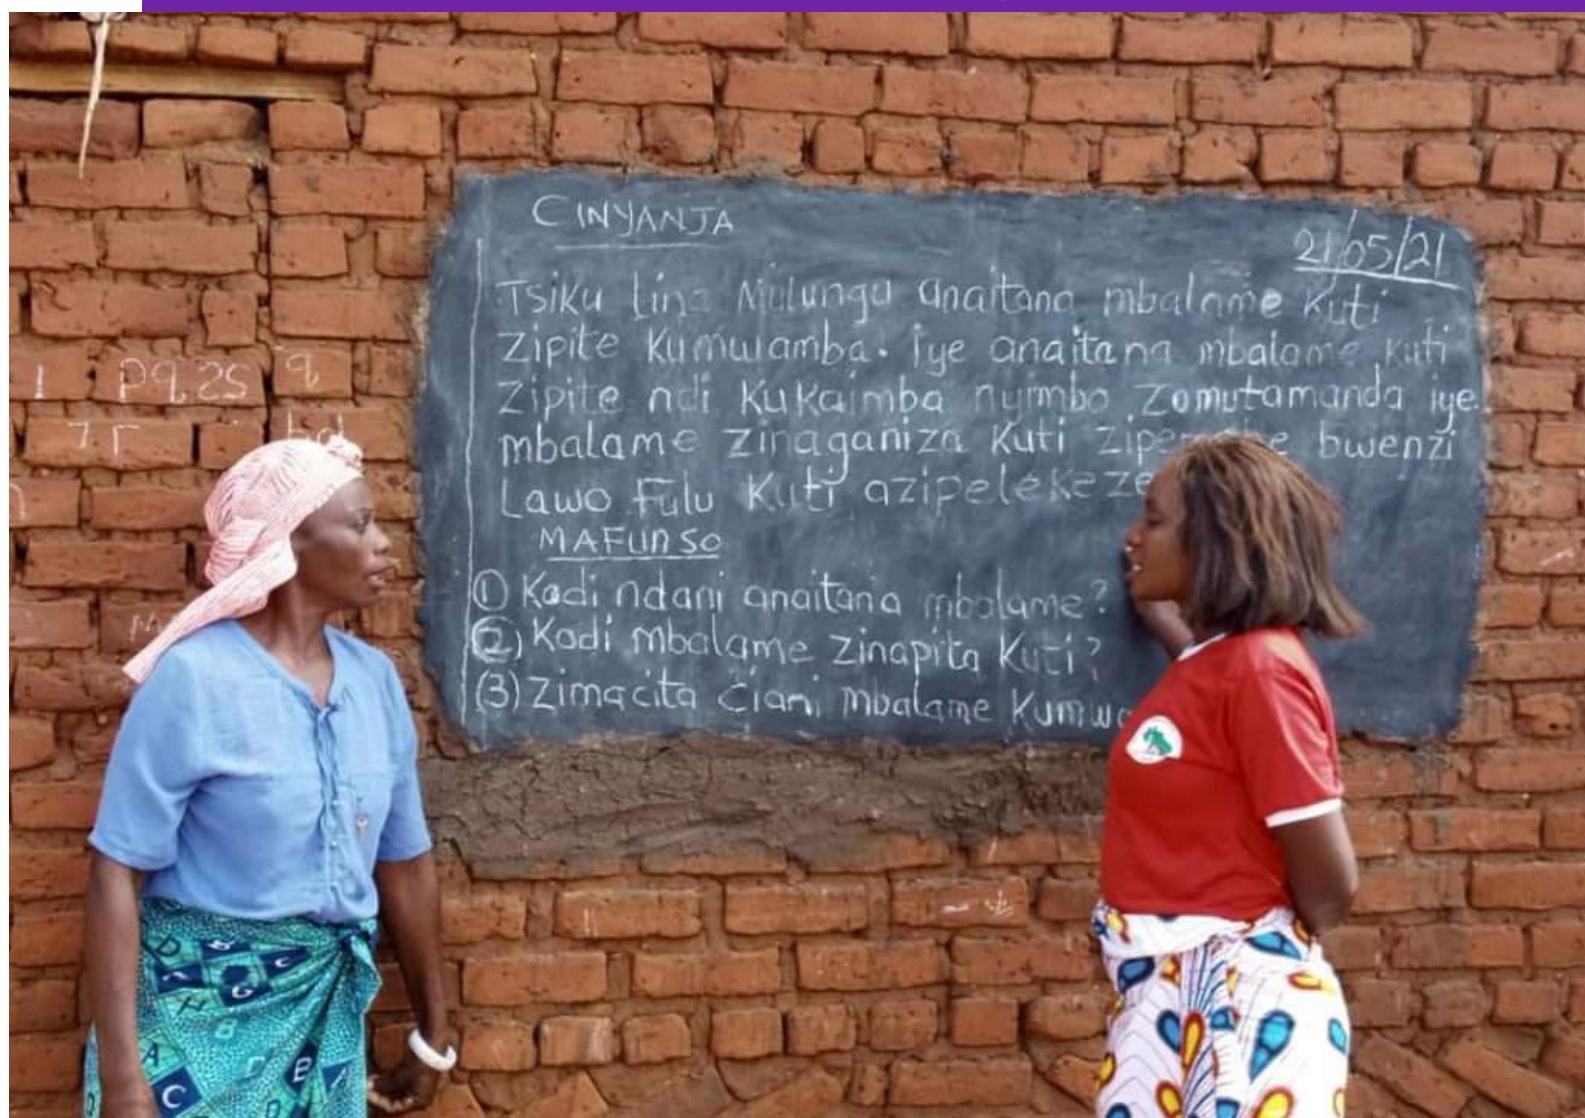 CINYANJA
21/05/21
Tsiku lina Mulungu anaitana mbalame kuti
zipite kumwamba. iye anaitana mbalame kuti
zipite ndi kukaimba nyimbo zomutamanda iye.
mbalame zinaganiza kuti bwenzi
Lawo Fulu kuti azipelekeze
MAFUNSO
(1) Kodi ndani anaitana mbalame?
(2) Kodi mbalame zinapita kuti?
(3) Zimacita ciani mbalame
1 Pq,2s q
7 r bd